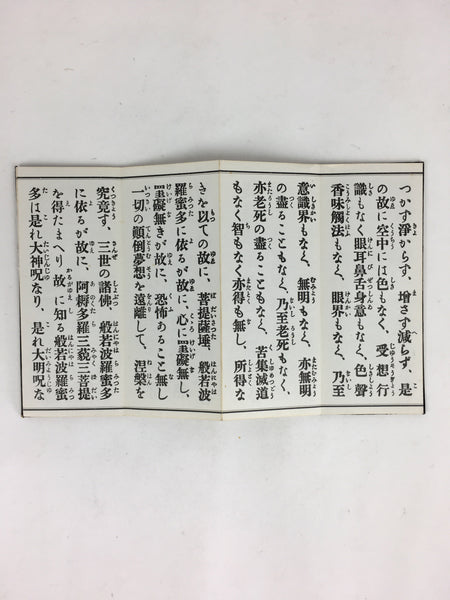 つかず淨からず、增さず減らず、是
の故に空中には色もなく、受想行
識もなく眼耳鼻舌身意もなく、色聲
香味觸法もなく、眼界もなく、乃至
意識界もなく、無明もなく、亦無明
の盡ることもなく、乃至老死もなく、
亦老死の盡ることもなく、苦集滅道
もなく智もなく亦得も無し、所得な
きを以ての故に、菩提薩埵、般若波
羅蜜多に依るが故に、心に罣礙無し、
罣礙無きが故に、恐怖あること無し
一切の顚倒夢想を遠離して、涅槃を
究竟す、三世の諸佛、般若波羅蜜多
に依るが故に、阿耨多羅三藐三菩提
を得たまへり故に知る般若波羅蜜
多は是れ大神呪なり、是れ大明呪な